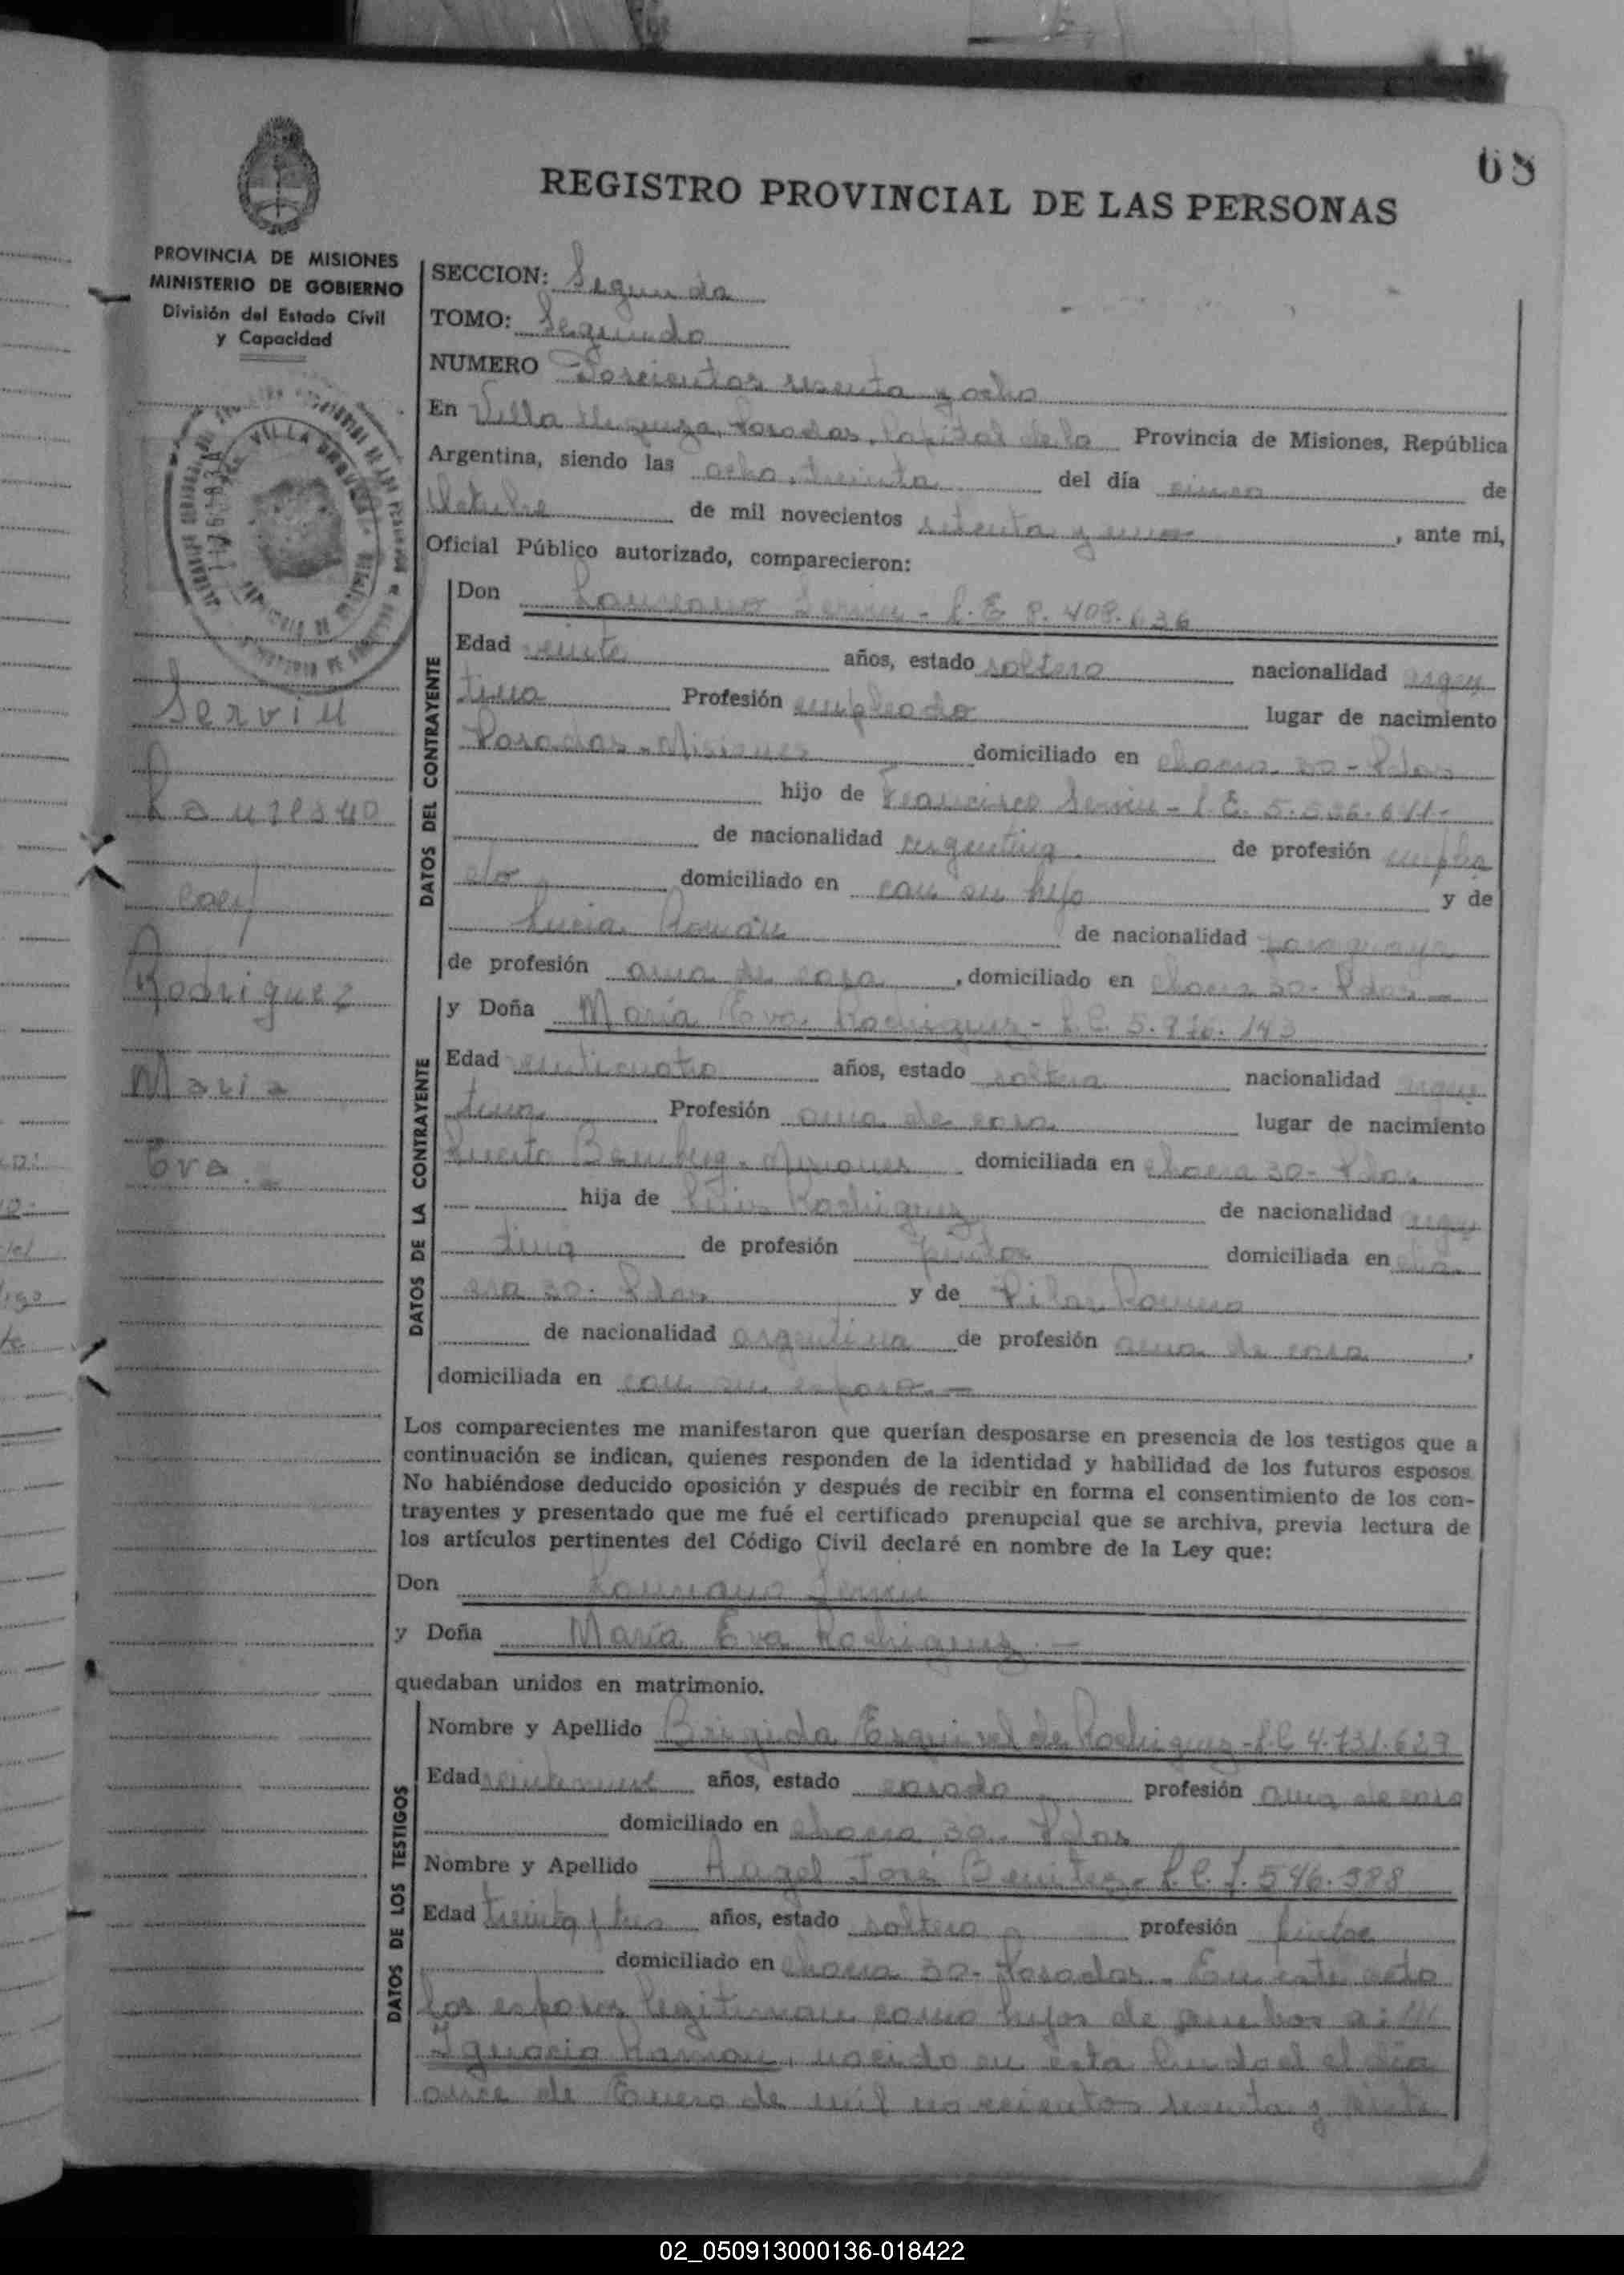 68
REGISTRO PROVINCIAL DE LAS PERSONAS
PROVINCIA DE MISIONES
MINISTERIO DE GOBIERNO
División del Estado Civil
y Capacidad
SECCION: Segunda
TOMO: Segundo
NUMERO Doscientos sesenta y ocho
En Villa Urquiza, Posadas, Capital de la Provincia de Misiones, República
Argentina, siendo las ocho, treinta del día cinco de
Octubre de mil novecientos setenta y uno, ante mi,
Oficial Público autorizado, comparecieron:
Servin
Laureano
con
Rodriguez
Maria
Eva.-
DATOS DEL CONTRAYENTE
Don Laureano Servin - L.E 8.408.636
Edad veinte años, estado soltero nacionalidad argen
tina Profesión empleado lugar de nacimiento
Posadas - Misiones domiciliado en chacra 30 - Pdas
hijo de Francisco Servin - L.E. 5.556.641-
de nacionalidad argentina de profesión emplea
do domiciliado en con su hijo y de
Lucia Román de nacionalidad paraguaya
de profesión ama de casa, domiciliado en chacra 30 - Pdas -
DATOS DE LA CONTRAYENTE
y Doña María Eva Rodriguez - L.C. 143
Edad veinticuatro años, estado soltera nacionalidad argen
tina Profesión ama de casa lugar de nacimiento
Puerto Bemberg - Misiones domiciliada en chacra 30 - Pdas
hija de Rodriguez de nacionalidad argen
tina de profesión pintor domiciliada en cha
cra 30 - Pdas y de Pilar Romero
de nacionalidad argentina de profesión ama de casa,
domiciliada en con su esposo. -
Los comparecientes me manifestaron que querían desposarse en presencia de los testigos que a
continuación se indican, quienes responden de la identidad y habilidad de los futuros esposos.
No habiéndose deducido oposición y después de recibir en forma el consentimiento de los con-
trayentes y presentado que me fué el certificado prenupcial que se archiva, previa lectura de
los artículos pertinentes del Código Civil declaré en nombre de la Ley que:
Don Laureano Servin
y Doña María Eva Rodriguez. -
quedaban unidos en matrimonio.
DATOS DE LOS TESTIGOS
Nombre y Apellido Brigida Esquivel de Rodriguez - L.C 4.731.629
Edad veintinueve años, estado casada profesión ama de casa
domiciliado en chacra 30 - Pdas
Nombre y Apellido Angel José Benitez - 546.988
Edad treinta y tres años, estado soltero profesión pintor
domiciliado en chacra 30 - Posadas - En este acto
los esposos legitiman como hijos de ambos a:
Ignacio Ramon, nacido en esta Ciudad el dia
once de Enero de mil novecientos sesenta y siete
02_050913000136-018422